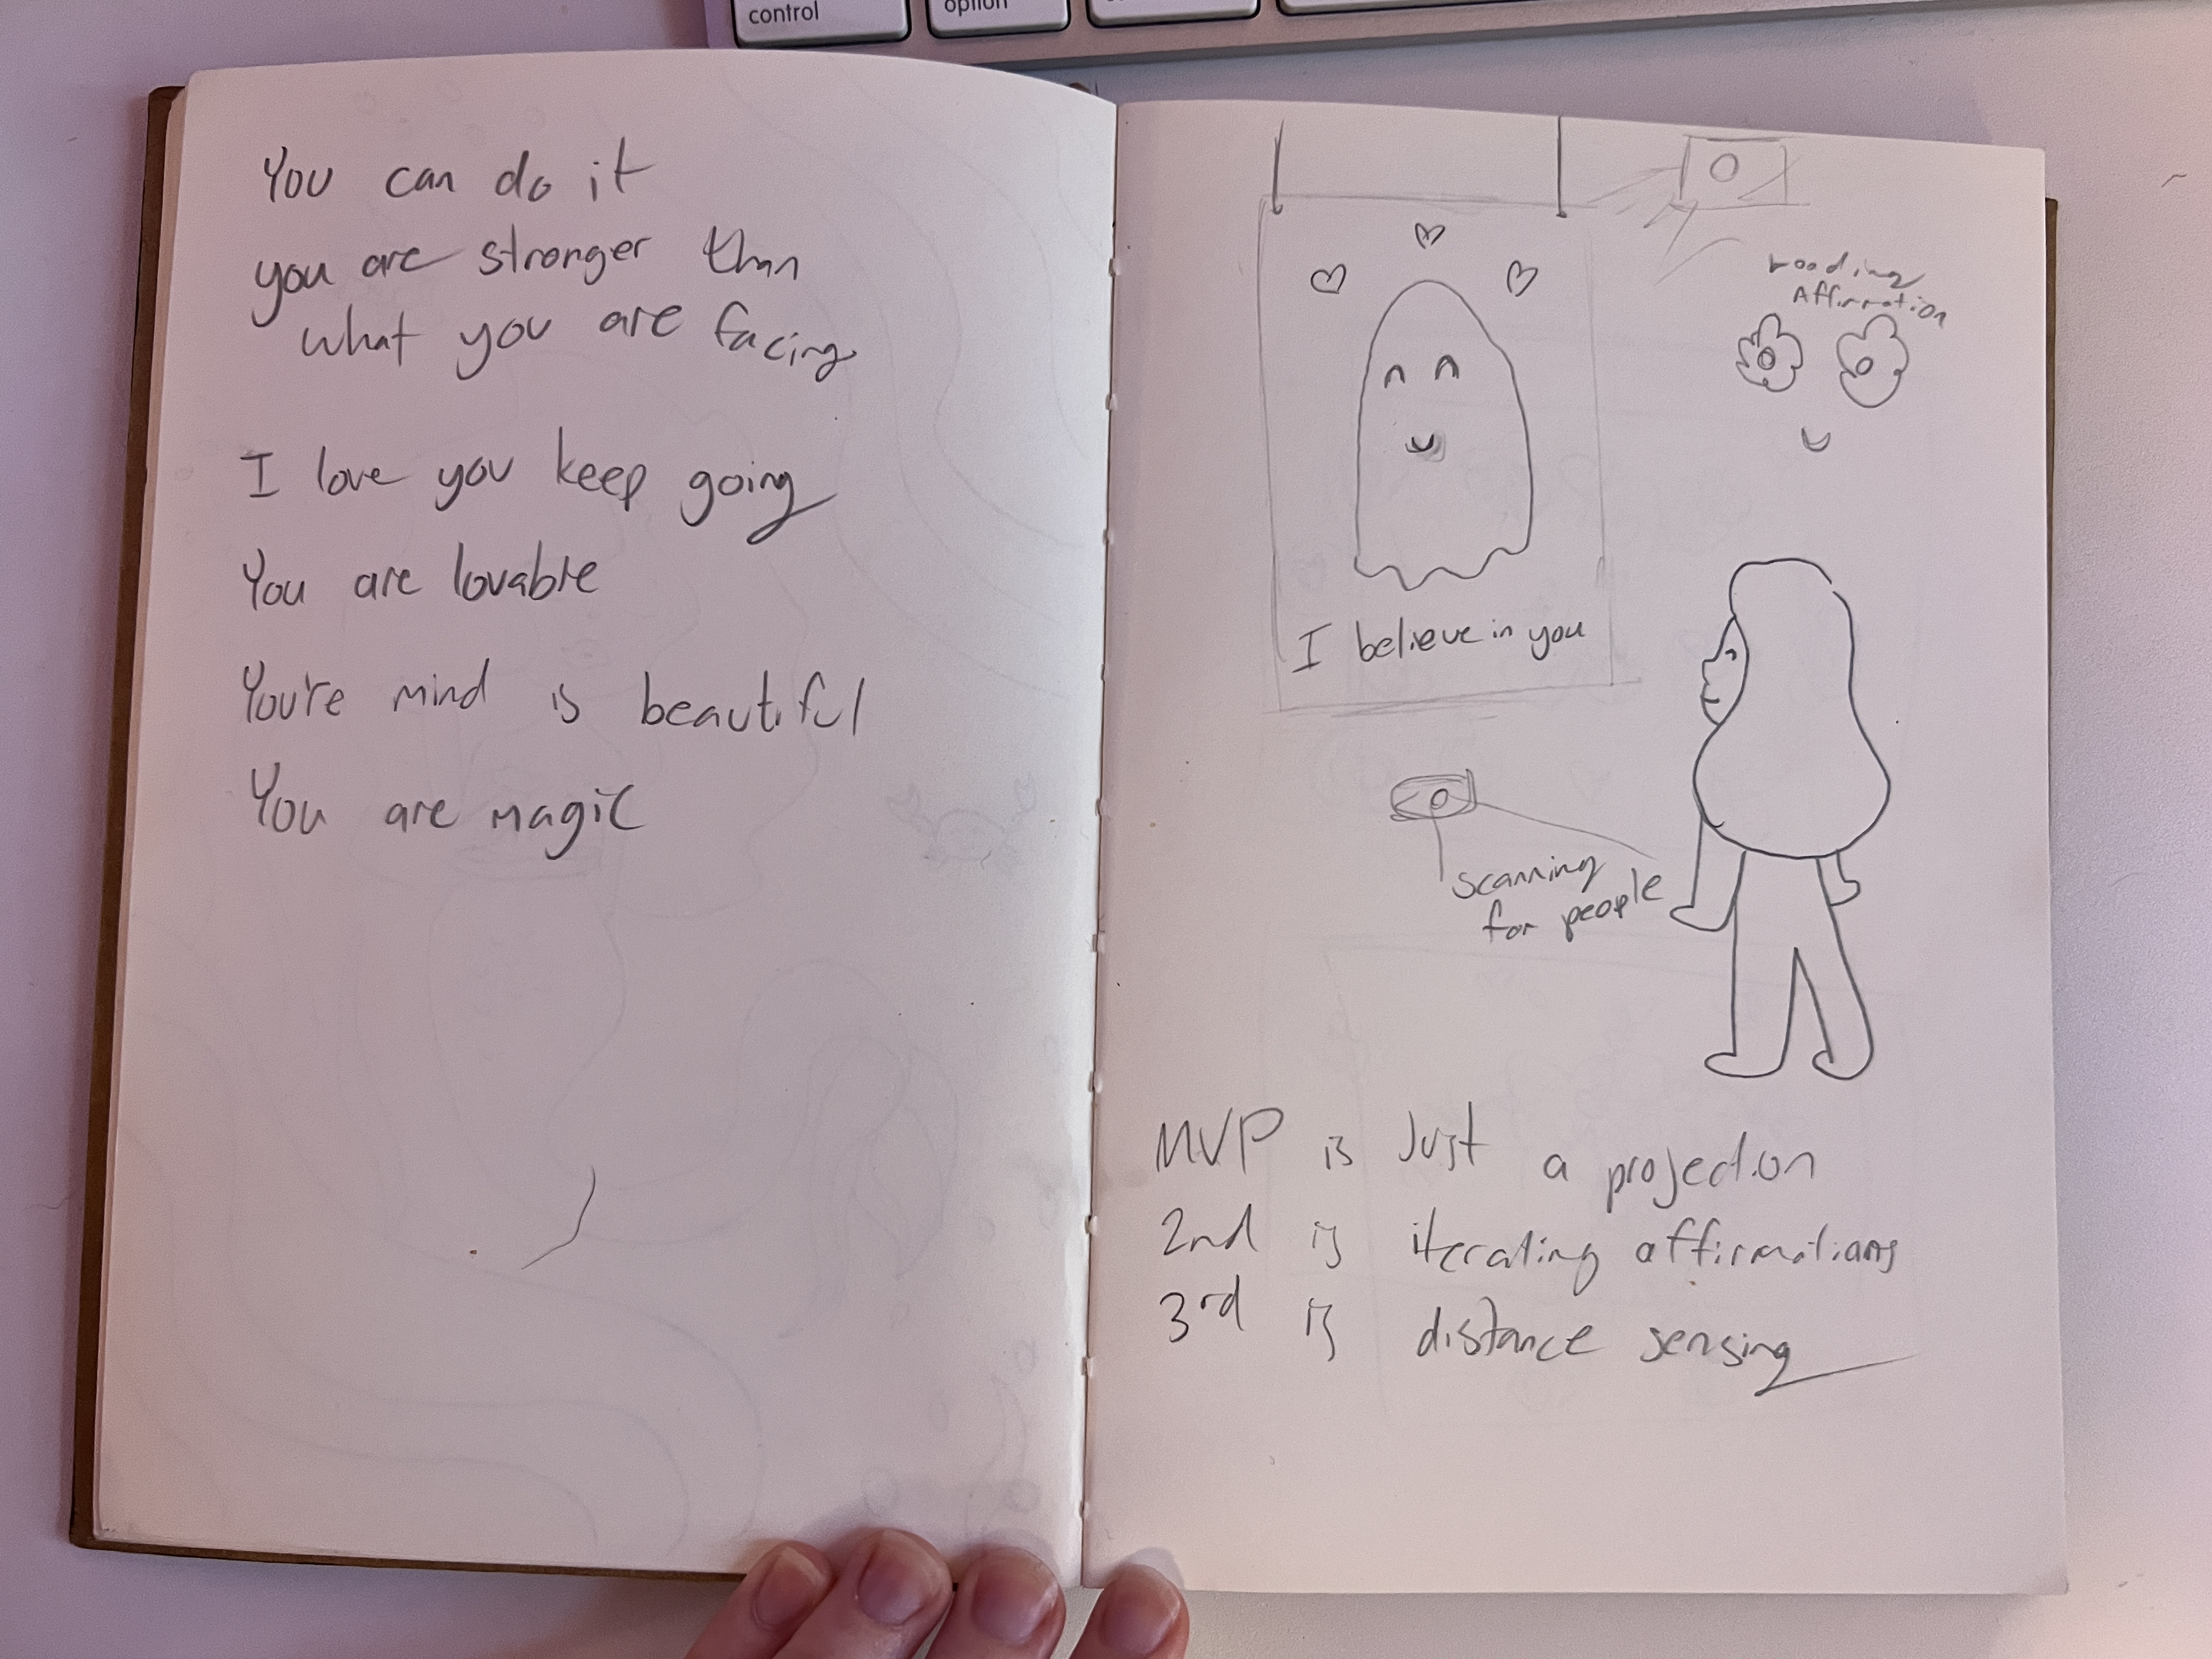 control
option
You can do it
you are stronger than
what you are facing
I love you keep going
You are lovable
You're mind is beautiful
You are magic
Affirmation
I believe in you
scanning
for people
MVP is Just a projection
2nd is iterating affirmations
3rd is distance sensing